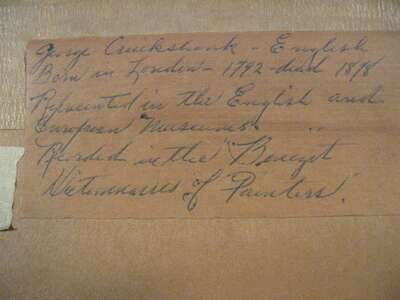 George Cruckshank - English
Born in London - 1792 - died 1878
Repsented in the English and
European Museums. ..
Recorded in the "Benezit
Dictionnaries of Painters".